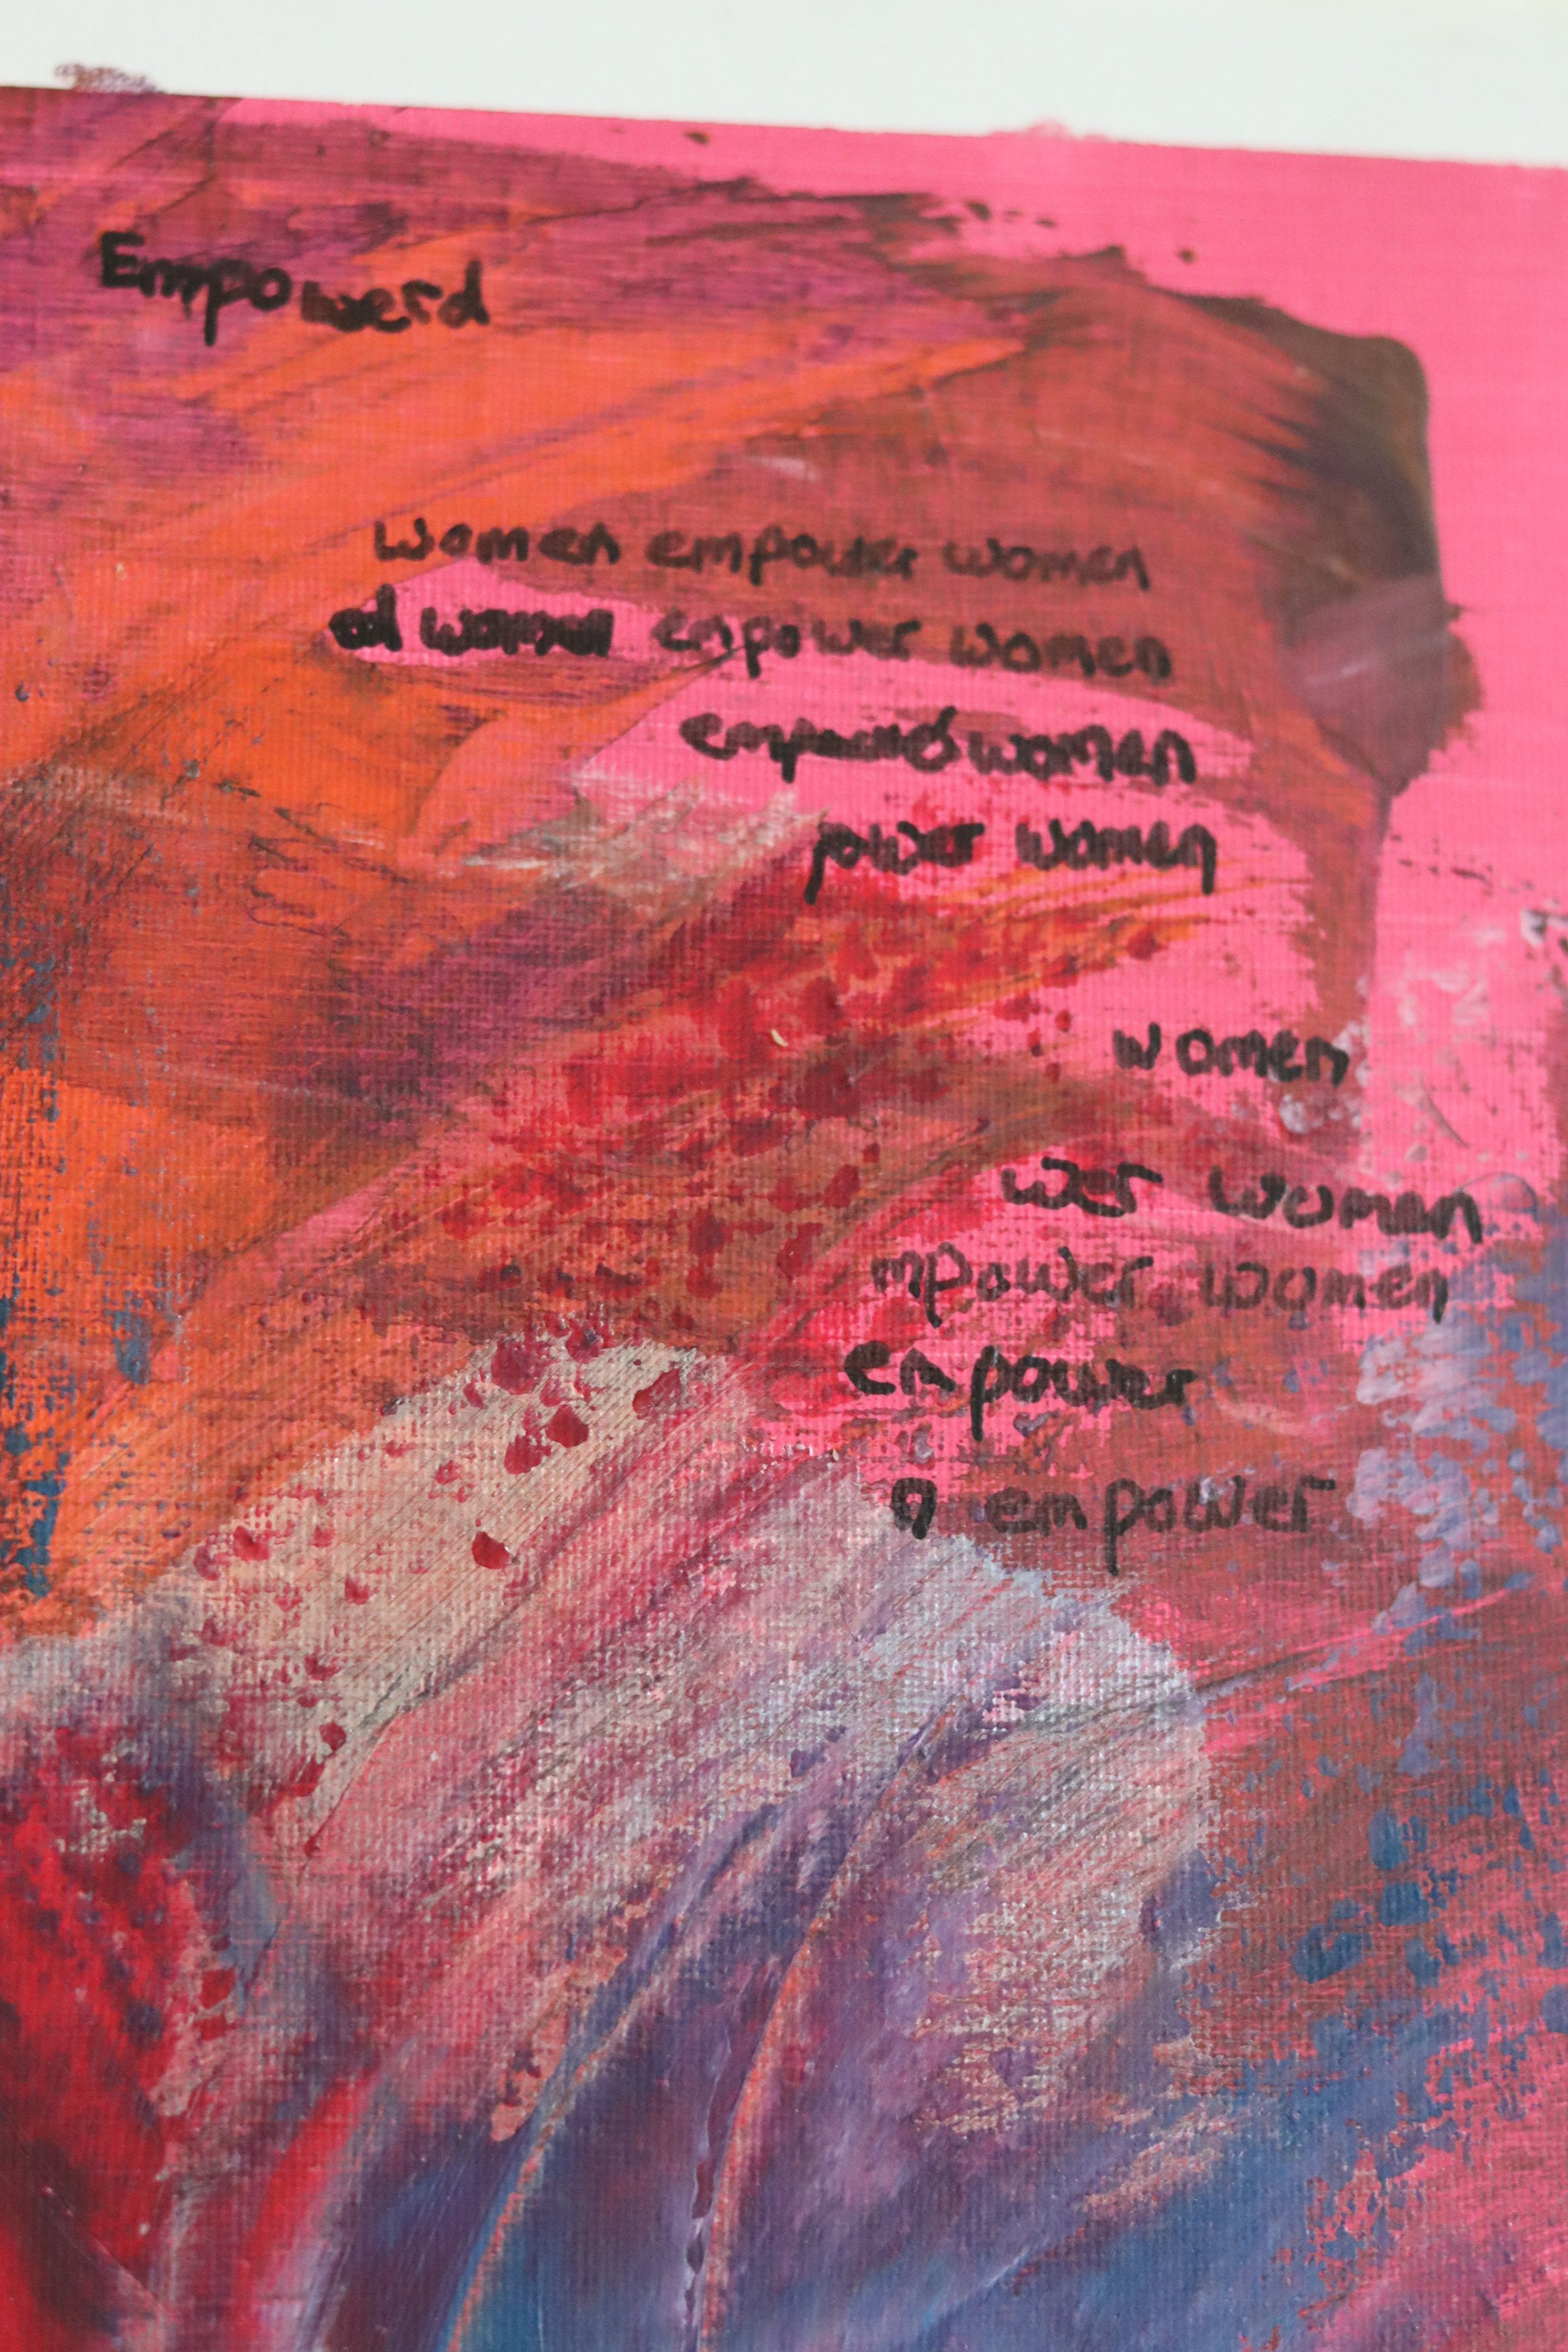 Empowerd
women empower women
women empower women
women
power women
women
wer women
mpower women
empower
n empower